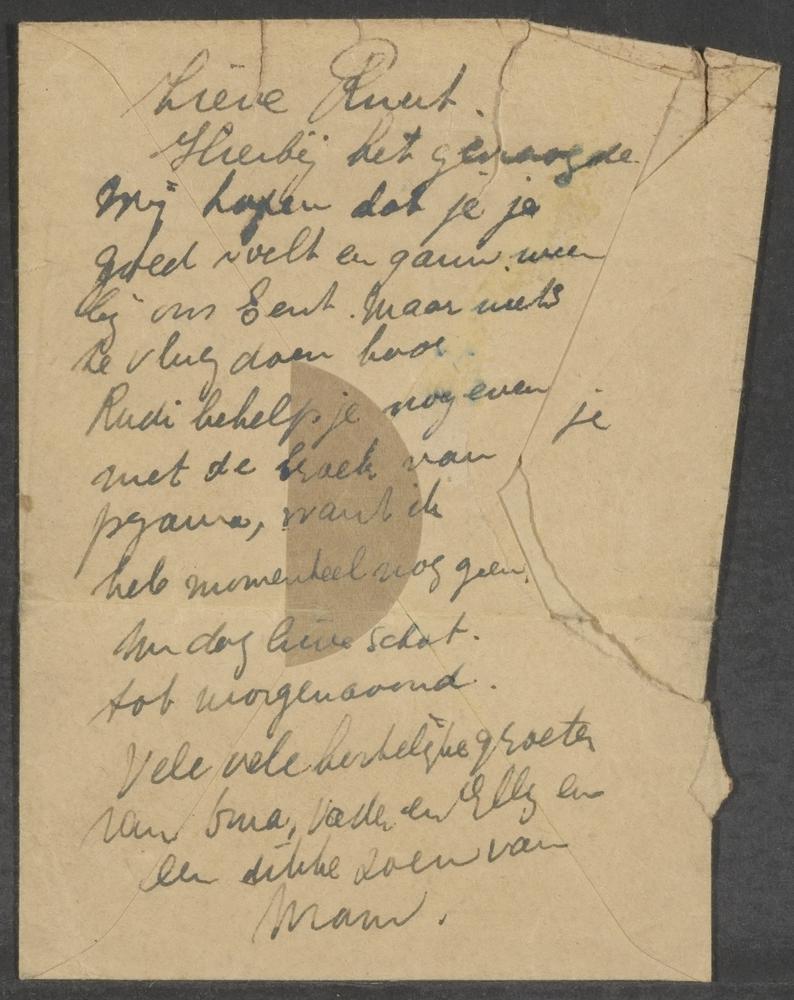 Lieve Ruut.
Hierbij het gevraagde.
Wij hopen dat je je
goed voelt en gauw weer
bij ons bent. Maar niets
te vlug doen hoor
Rudi behelp je nog even
met de broek van je
pyama, want ik
heb momenteel nog geen.
Nu dag lieve schat.
tot morgenavond.
Vele vele hartelijke groeten
van Oma, Vader en Elly en
een dikke zoen van
Mam.